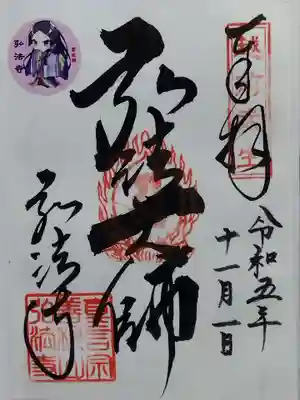 奉拝
令和五年
十一月一日
弘法大師
弘法寺
弘法寺